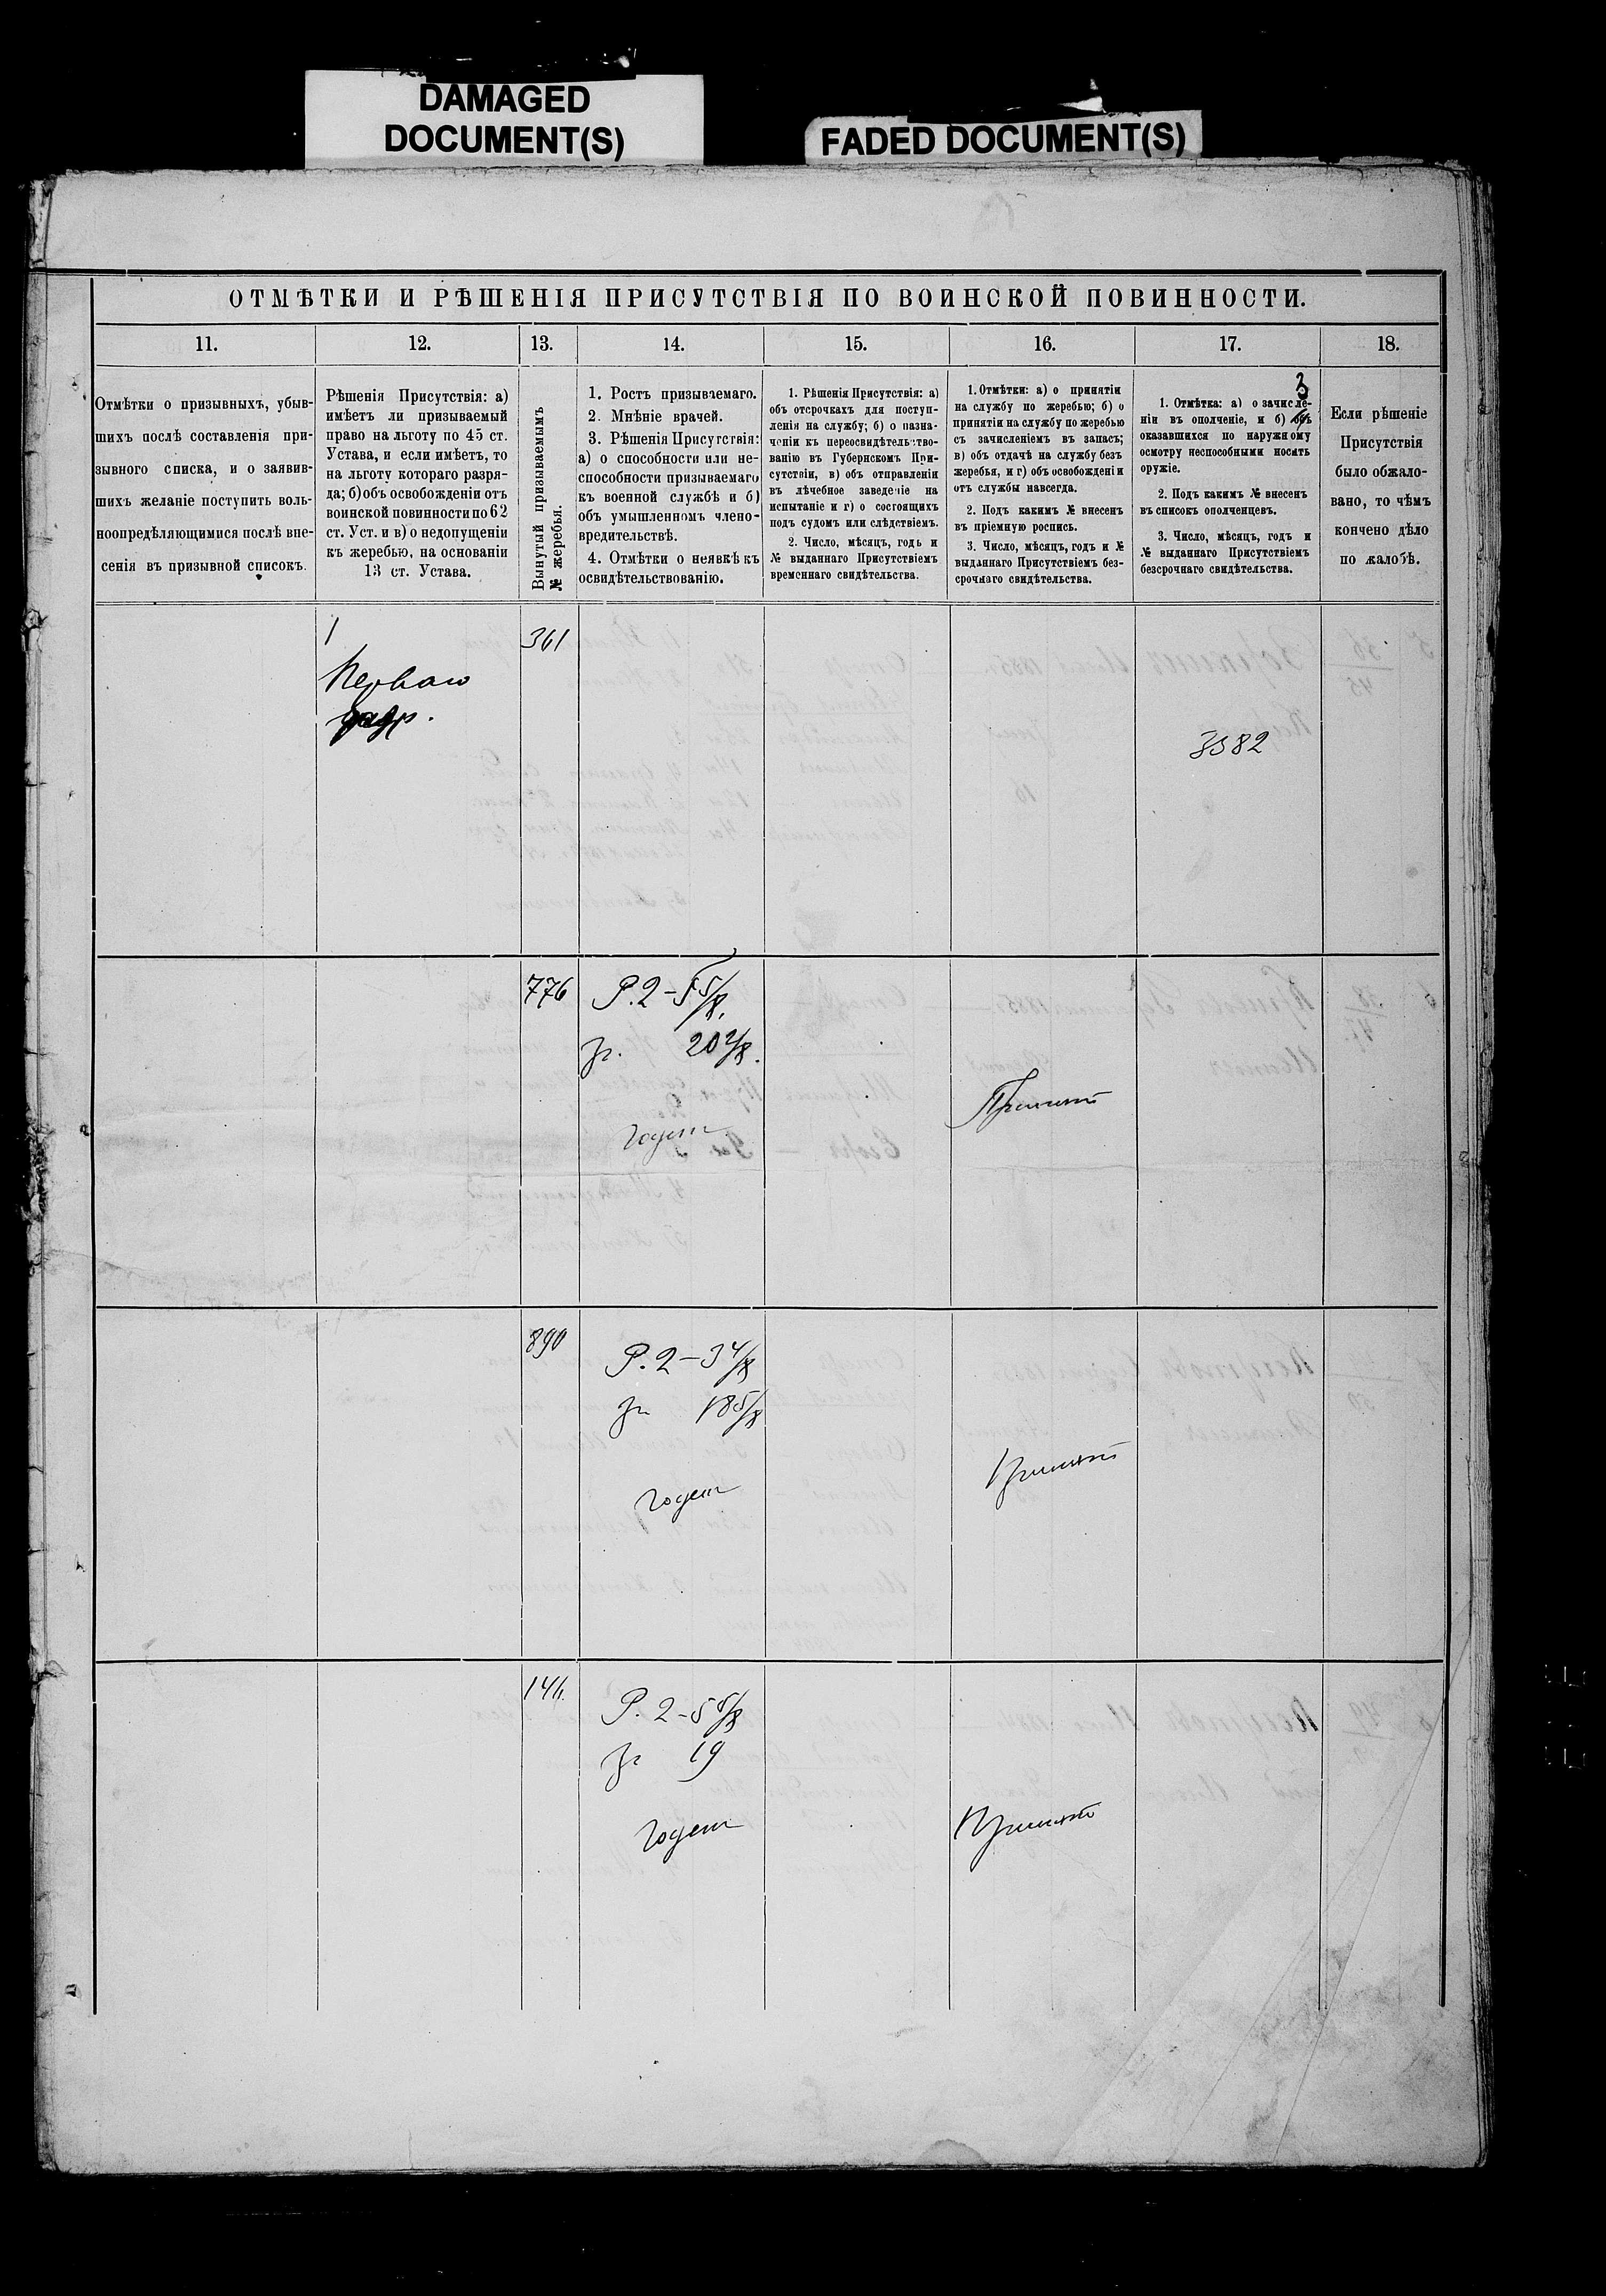 DAMAGED
DOCUMENT(S)
FADED DOCUMENT(S)
ОТМѢТКИ И РѢШЕНІЯ ПРИСУТСТВІЯ ПО ВОИНСКОЙ ПОВИННОСТИ.
11.
12.
13.
14.
15.
16.
17.
18.
Отмѣтки о призывныхъ, убыв-
шихъ послѣ составленія при-
зывного списка, и о заявив-
шихъ желаніе поступить воль-
ноопредѣляющимися послѣ вне-
сенія въ призывной списокъ.
Рѣшенія Присутствія: а)
имѣетъ ли призываемый
право на льготу по 45 ст.
Устава, и если имѣетъ, то
на льготу котораго разря-
да; б) объ освобожденіи отъ
воинской повинности по 62
ст. Уст. и в) о недопущеніи
къ жеребью, на основаніи
13 ст. Устава.
Вынутый призываемымъ
№ жеребья.
1. Ростъ призываемаго.
2. Мнѣніе врачей.
3. Рѣшенія Присутствія:
а) о способности или не-
способности призываемаго
къ военной службѣ и б)
объ умышленномъ члено-
вредительствѣ.
4. Отмѣтки о неявкѣ къ
освидѣтельствованію.
1. Рѣшенія Присутствія: а)
объ отсрочкахъ для поступ-
ленія на службу; б) о назна-
ченіи къ переосвидѣтельство-
ванію въ Губернскомъ При-
сутствіи, в) объ отправленіи
въ лѣчебное заведеніе на
испытаніе и г) о состоящихъ
подъ судомъ или слѣдствіемъ.
2. Число, мѣсяцъ, годъ и
№ выданнаго Присутствіемъ
временнаго свидѣтельства.
1. Отмѣтки: а) о принятіи
на службу по жеребью; б) о
принятіи на службу по жеребью
съ зачисленіемъ въ запасъ;
в) объ отдачѣ на службу безъ
жеребья, и г) объ освобожденіи
отъ службы навсегда.
2. Подъ какимъ № внесенъ
въ пріемную роспись.
3. Число, мѣсяцъ, годъ и №
выданнаго Присутствіемъ без-
срочнаго свидѣтельства.
3
1. Отмѣтка: а) о зачисле-
ніи въ ополченіе, и б) объ
оказавшихся по наружному
осмотру неспособными носить
оружіе.
2. Подъ какимъ № внесенъ
въ списокъ ополченцевъ.
3. Число, мѣсяцъ, годъ и
№ выданнаго Присутствіемъ
безсрочнаго свидѣтельства.
Если рѣшеніе
Присутствія
было обжало-
вано, то чѣмъ
кончено дѣло
по жалобѣ.
1
Перваго
разр.
361
3582
776
Р. 2 - 5 5/8.
гр. 20 2/8.
Годенъ
Принятъ
890
Р. 2 - 3 4/8
гр 18 5/8
Годенъ
Принятъ
Р. 2 - 5
гр 19
Годенъ
Принятъ